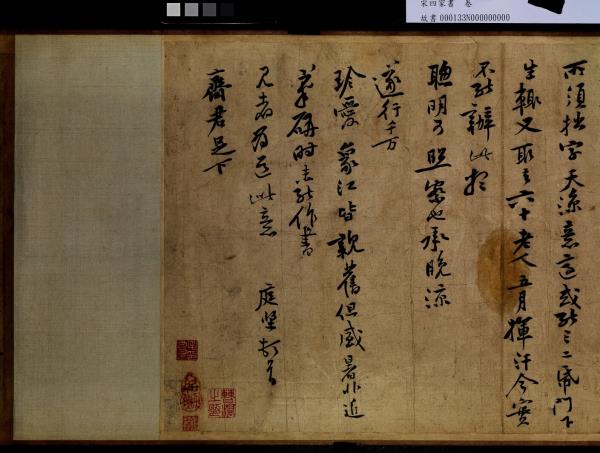 宋四家書 卷
故書 000133N000000000
所須拙字天涼意適或能三二紙門下
生輒又取去六十老人五月揮汗今實
不能辦此想
聰明可照察也承晚涼
遂行千万
珍愛象江皆親舊但盛暑非近
筆硯時未能作書
見者為道此意 庭堅頓首
齊君足下